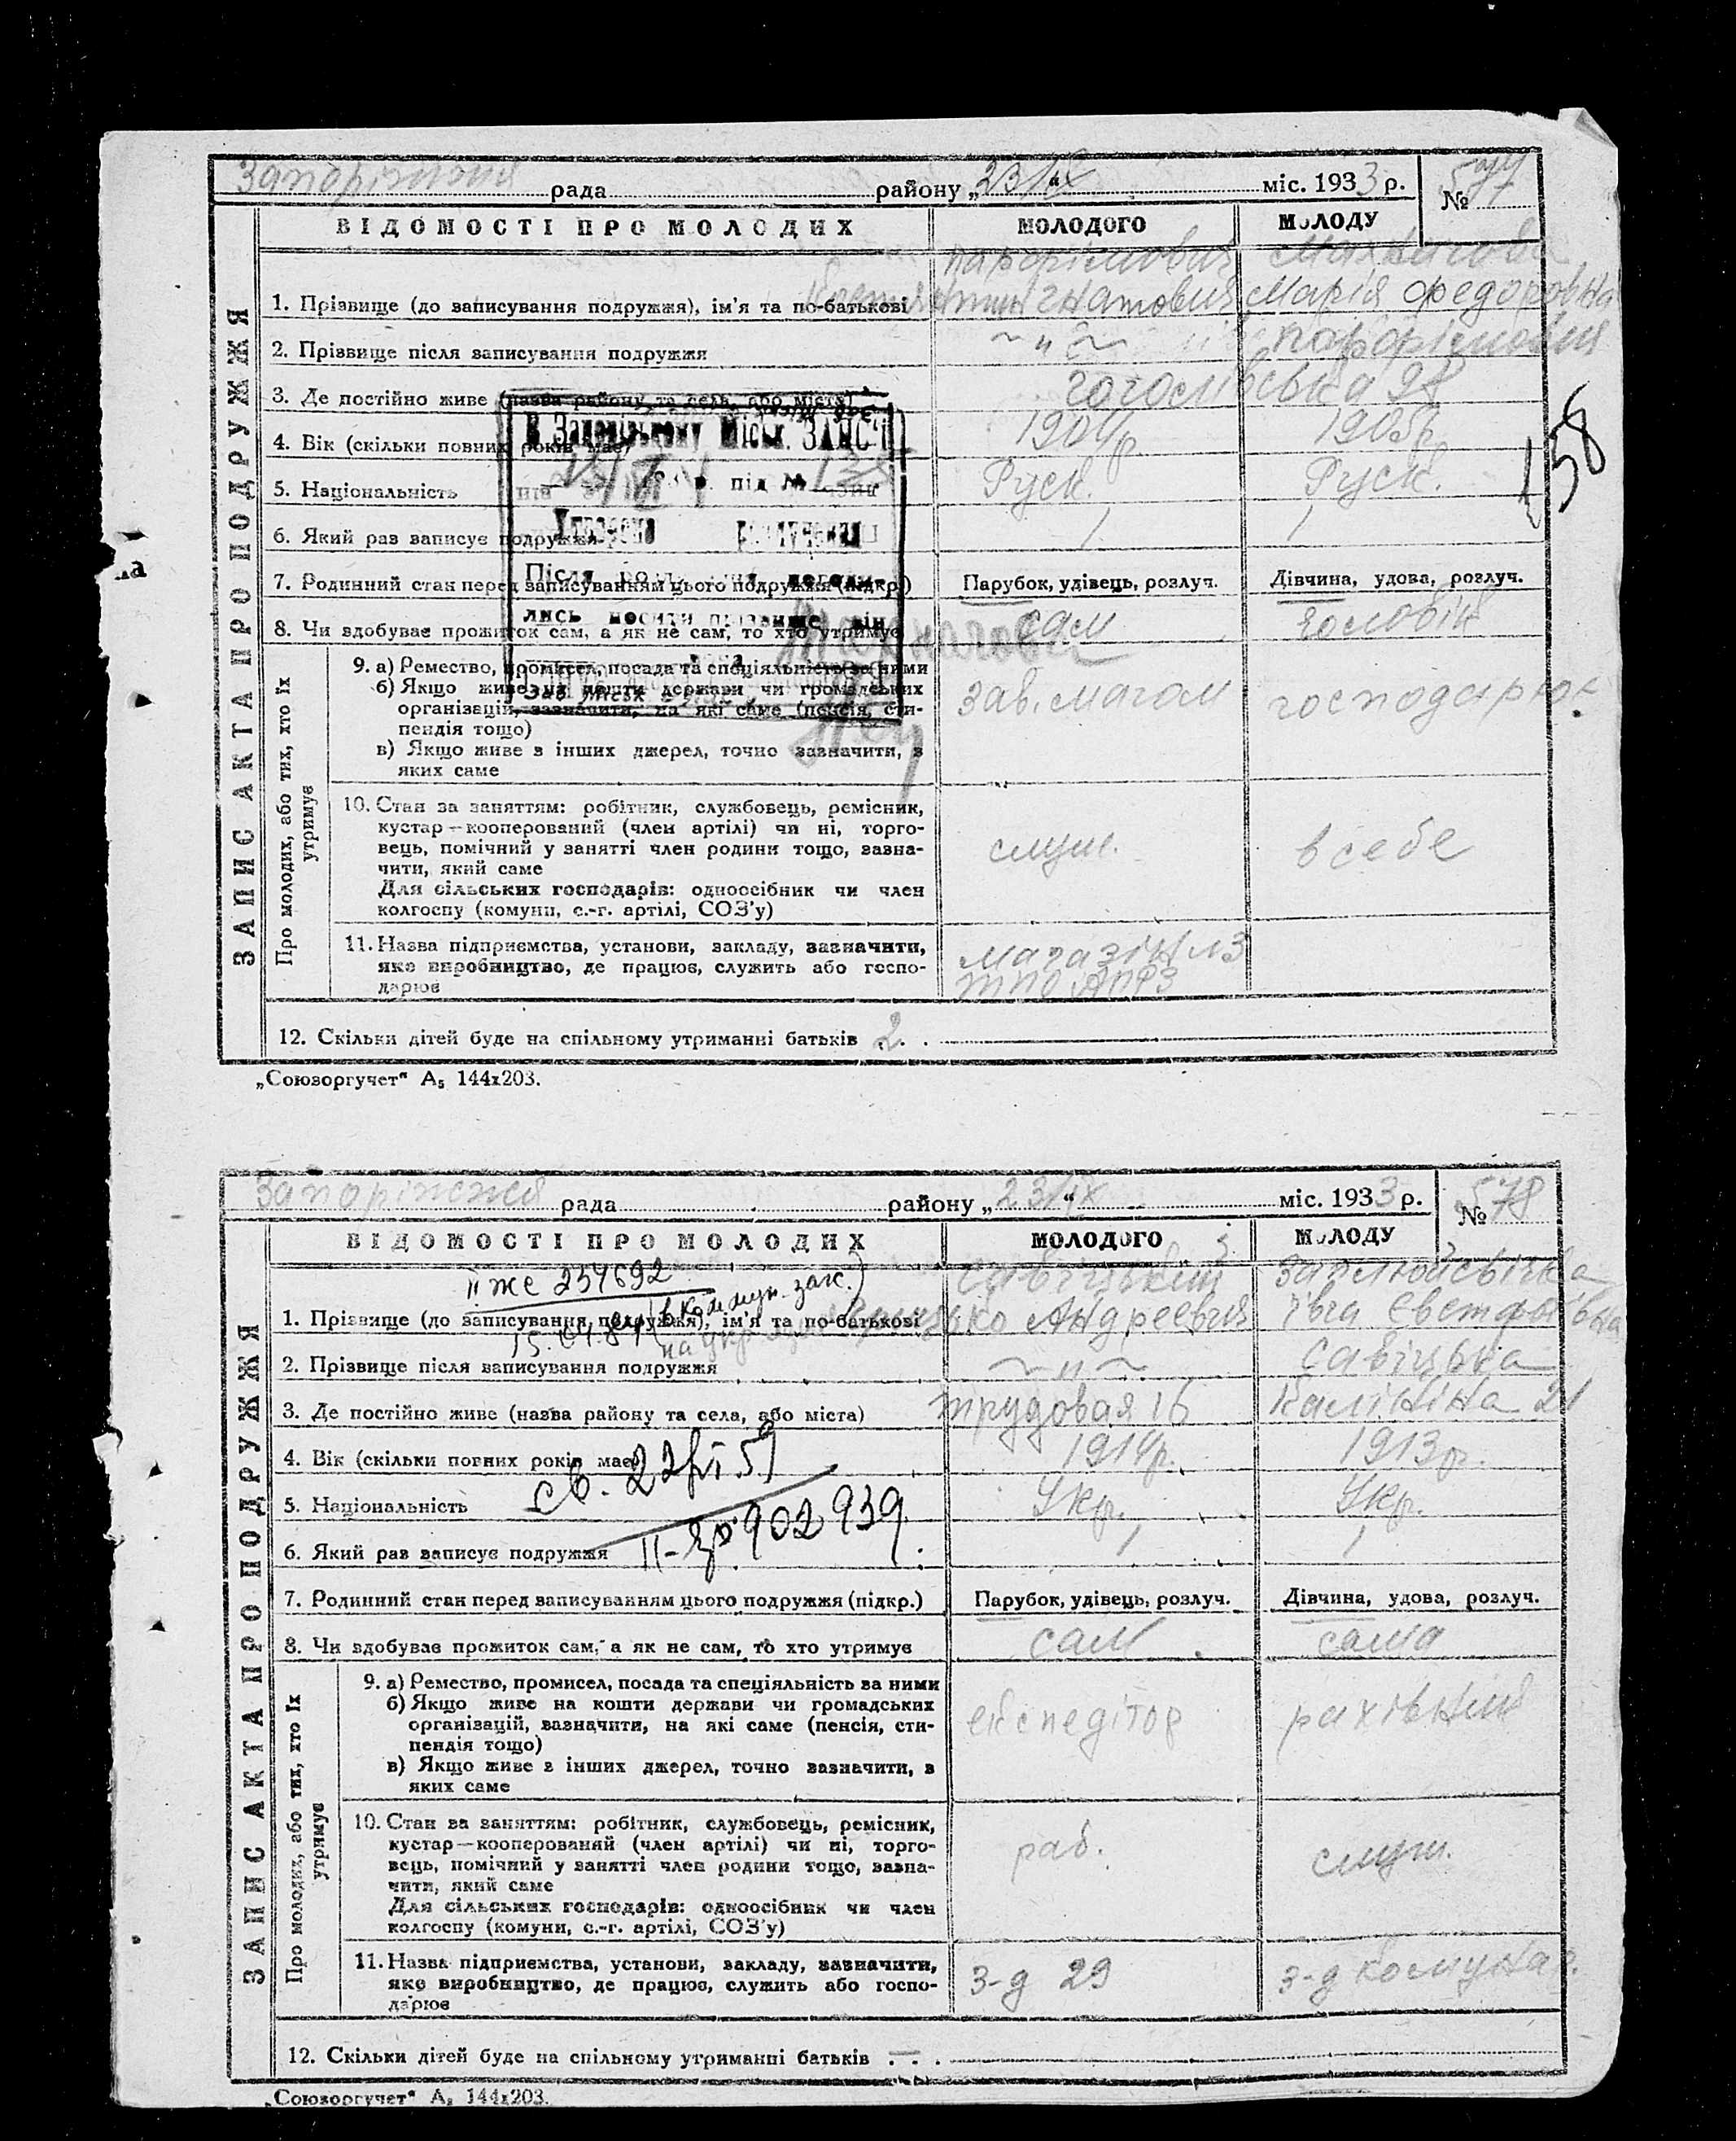 Запоріжжя рада района „23/IX“ міс. 1933 р. № 577
ВІДОМОСТІ ПРО МОЛОДИХ МОЛОДОГО МОЛОДУ
ЗАПИС АКТА ПРО ПОДРУЖЖЯ
1. Прізвище (до записування подружжя), ім'я та по-батькові Гнатович Марія Федоровна
2. Прізвище після записування подружжя ~ „ ~
3. Де постійно живе (назва району та села, або міста) Гоголівська 98
4. Вік (скільки повних років має) 1904р. 1905р.
5. Національність Руск. Руск.
6. Який раз записує подружжя 1 1
7. Родинний стан перед записуванням цього подружжя (підкр.) Парубок, удівець, розлуч. Дівчина, удова, розлуч.
8. Чи здобуває прожиток сам, а як не сам, то хто утримує сам чоловік
В Запорізькому Міськ. ЗАГС'і
р. під №
Після
лись носити прізвище він
158
Про молодих, або тих, хто їх утримує
9. а) Ремество, промисел, посада та спеціяльність за ними
б) Якщо живе на кошти держави чи громадських
організацій, зазначити, на які саме (пенсія, сти-
пендія тощо)
в) Якщо живе з інших джерел, точно зазначити, з
яких саме
зав. магом
10. Стан за заняттям: робітник, службовець, ремісник,
кустар—кооперований (член артілі) чи ні, торго-
вець, помічний у занятті член родини тощо, зазна-
чити, який саме
Для сільських господарів: одноосібник чи член
колгоспу (комуни, с.-г. артілі, СОЗ'у)
служ. в себе
11. Назва підприємства, установи, закладу, зазначити,
яке виробництво, де працює, служить або госпо-
дарює
магазін
12. Скільки дітей буде на спільному утриманні батьків 2
„Союзоргучет“ А₅ 144х203.
Запоріжжя рада району „23/IX“ міс. 1933 р. № 578
ВІДОМОСТІ ПРО МОЛОДИХ МОЛОДОГО МОЛОДУ
ЗАПИС АКТА ПРО ПОДРУЖЖЯ
II же 254692
1. Прізвище (до записування подружжя), ім'я та по-батькові Савіцький Андреевич
15.04.84
2. Прізвище після записування подружжя ~ „ ~ Савіцька
3. Де постійно живе (назва району та села, або міста) Трудовая 16 Калініна 21
4. Вік (скільки повних років має) 1914р. 1913р.
5. Національність Укр. Укр.
6. Який раз записує подружжя 1 1
902939
7. Родинний стан перед записуванням цього подружжя (підкр.) Парубок, удівець, розлуч. Дівчина, удова, розлуч.
8. Чи здобуває прожиток сам, а як не сам, то хто утримує сам сама
Про молодих, або тих, хто їх утримує
9. а) Ремество, промисел, посада та спеціяльність за ними
б) Якщо живе на кошти держави чи громадських
організацій, зазначити, на які саме (пенсія, сти-
пендія тощо)
в) Якщо живе з інших джерел, точно зазначити, з
яких саме
експедітор рахівник
10. Стан за заняттям: робітник, службовець, ремісник,
кустар—кооперований (член артілі) чи ні, торго-
вець, помічний у занятті член родини тощо, зазна-
чити, який саме
Для сільських господарів: одноосібник чи член
колгоспу (комуни, с.-г. артілі, СОЗ'у)
раб. служ.
11. Назва підприємства, установи, закладу, зазначити,
яке виробництво, де працює, служить або госпо-
дарює
з-д 29 з-д Комунар.
12. Скільки дітей буде на спільному утриманні батьків —
„Союзоргучет“ А₅ 144х203.